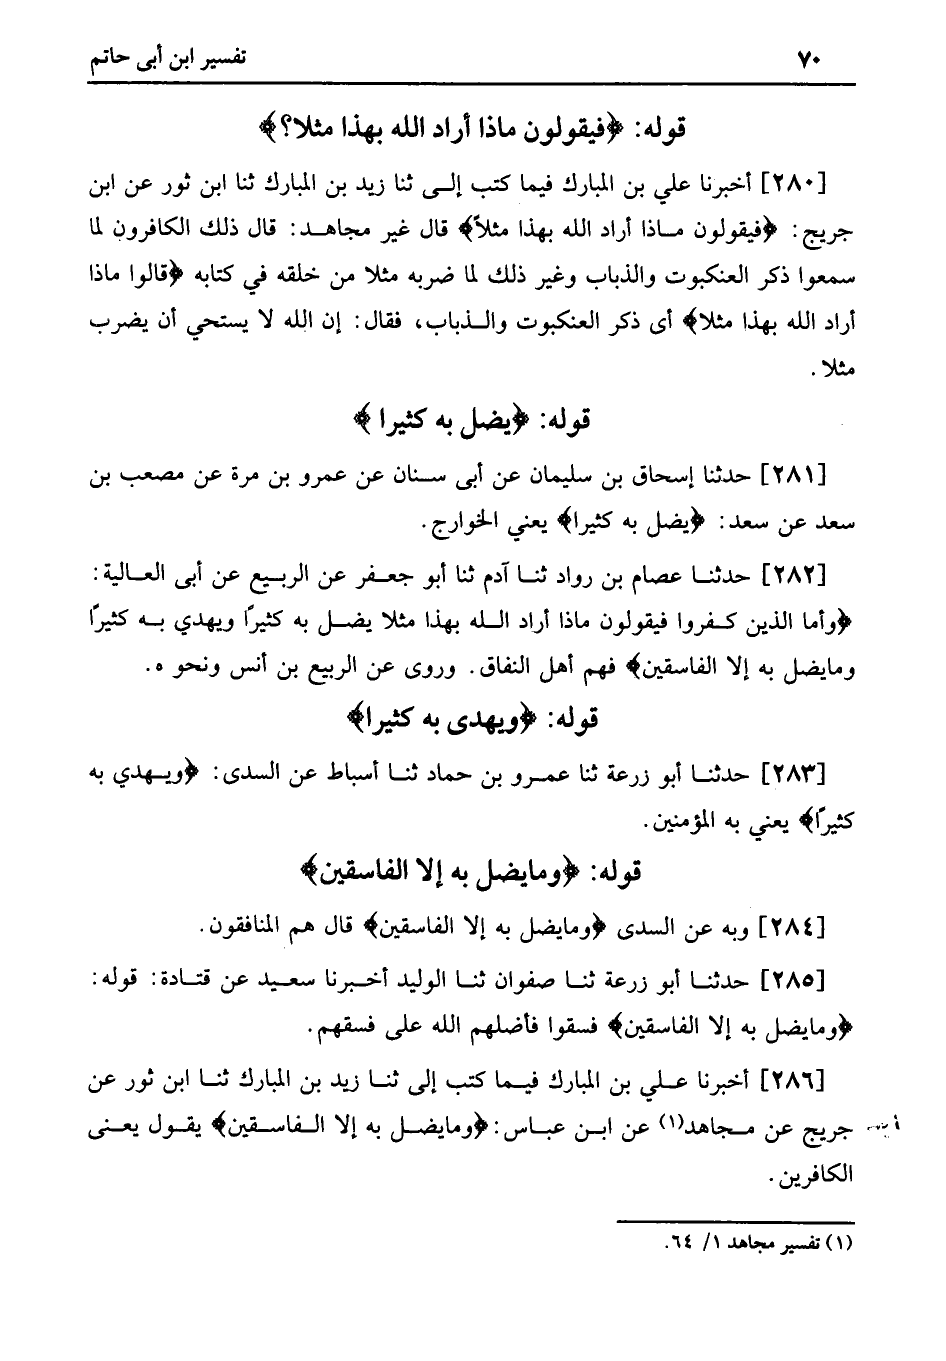 ٧٠ تفسير ابن أبى حاتم
قوله: ﴿فيقولون ماذا أراد الله بهذا مثلا؟﴾
[٢٨٠] أخبرنا علي بن المبارك فيما كتب إلى ثنا زيد بن المبارك ثنا ابن ثور عن ابن
جريج: ﴿فيقولون ماذا أراد الله بهذا مثلاً﴾ قال غير مجاهد: قال ذلك الكافرون لما
سمعوا ذكر العنكبوت والذباب وغير ذلك لما ضربه مثلا من خلقه في كتابه ﴿قالوا ماذا
أراد الله بهذا مثلا﴾ أى ذكر العنكبوت والذباب، فقال: إن الله لا يستحي أن يضرب
مثلا.
قوله: ﴿يضل به كثيرا ﴾
[٢٨١] حدثنا إسحاق بن سليمان عن أبى سنان عن عمرو بن مرة عن مصعب بن
سعد عن سعد: ﴿يضل به كثيرا﴾ يعني الخوارج.
[٢٨٢] حدثنا عصام بن رواد ثنا آدم ثنا أبو جعفر عن الربيع عن أبى العالية:
﴿وأما الذين كفروا فيقولون ماذا أراد الله بهذا مثلا يضل به كثيرًا ويهدي به كثيرًا
ومايضل به إلا الفاسقين﴾ فهم أهل النفاق. وروى عن الربيع بن أنس ونحو ه.
قوله: ﴿ويهدى به كثيرا﴾
[٢٨٣] حدثنا أبو زرعة ثنا عمرو بن حماد ثنا أسباط عن السدى: ﴿ويهدي به
كثيرًا﴾ يعني به المؤمنين.
قوله: ﴿ومايضل به إلا الفاسقين﴾
[٢٨٤] وبه عن السدى ﴿ومايضل به إلا الفاسقين﴾ قال هم المنافقون.
[٢٨٥] حدثنا أبو زرعة ثنا صفوان ثنا الوليد أخبرنا سعيد عن قتادة: قوله:
﴿ومايضل به إلا الفاسقين﴾ فسقوا فأضلهم الله على فسقهم.
[٢٨٦] أخبرنا علي بن المبارك فيما كتب إلى ثنا زيد بن المبارك ثنا ابن ثور عن
جريج عن مجاهد(١) عن ابن عباس: ﴿ومايضل به إلا الفاسقين﴾ يقول يعنى
الكافرين.
(١) تفسير مجاهد ١/ ٦٤.